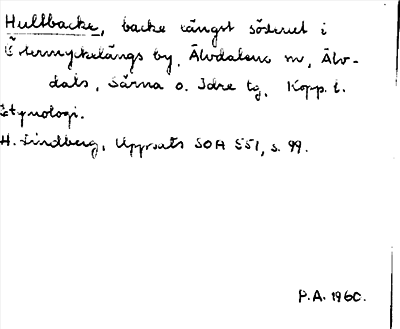 Hultbacke, backe längst söderut i
Östermyckelängs by, Älvdalens sn, Älv-
dals, Särna o. Idre tg, Kopp. l.
Etymologi.
H. Lindberg, Uppsats SOA 551, s. 99.
P.A. 1960.